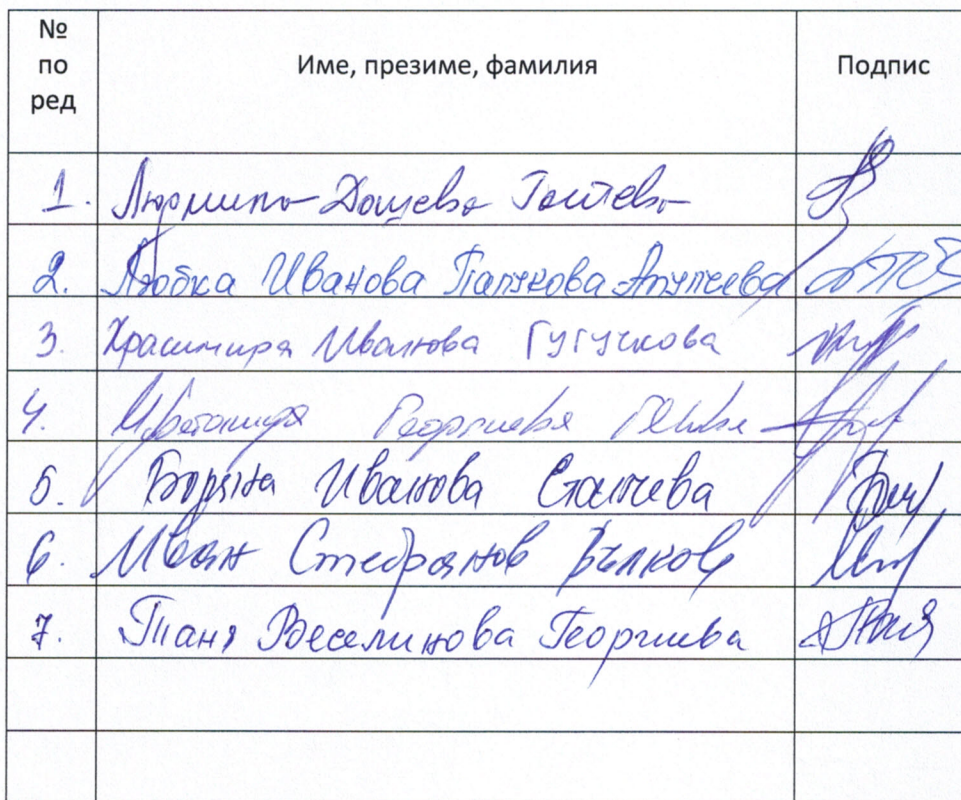 № по ред Име, презиме, фамилия Подпис
1. Людмила Дочева
2. Любка Иванова Папукова
3. Красимира Иванова Гугучкова
4. Георгиева
5. Боряна Иванова Станчева
6. Иван Стефанов Вълков
7. Таня Веселинова Георгиева